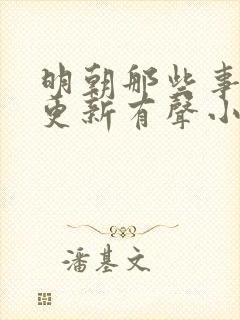 明朝那些事
更新有聲小
潘基文